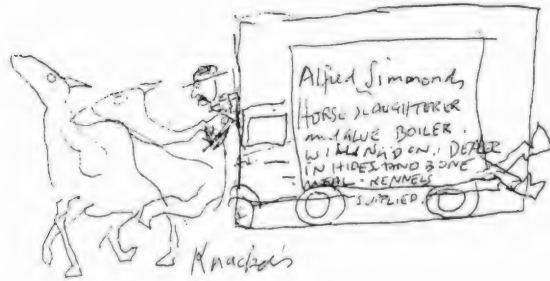 Alfred Simmonds
HORSE SLAUGHTERER
and GLUE BOILER.
WILLINGDON. DEALER
IN HIDES AND BONE
MEAL. KENNELS
SUPPLIED.
Knackers